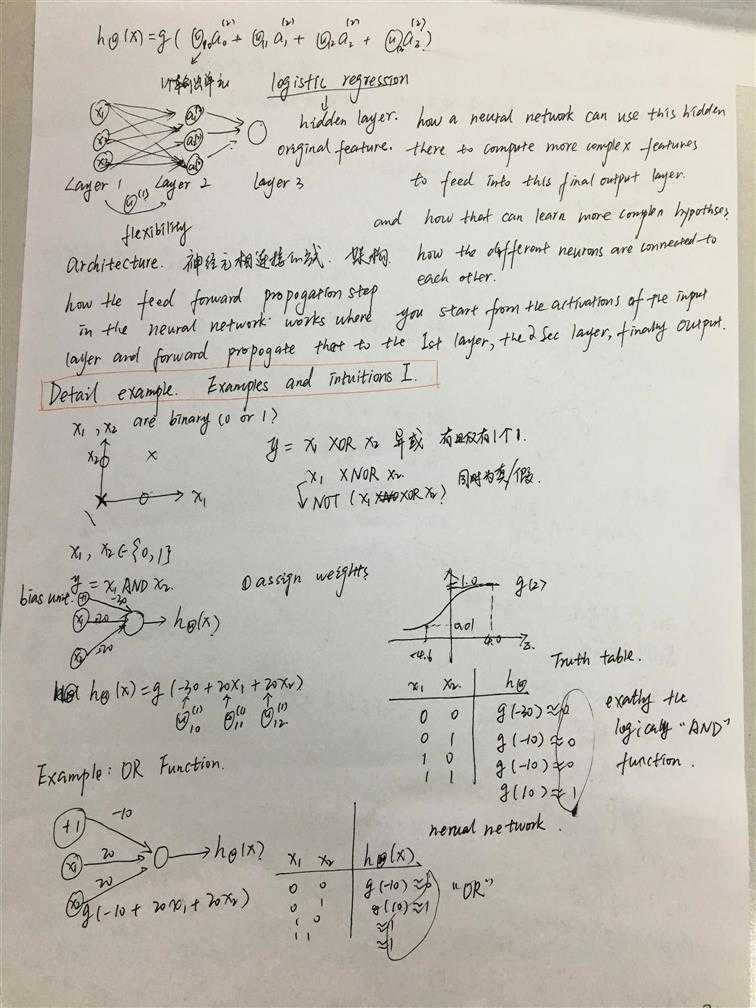 hΘ(x)=g(Θ10 a0^(2) + Θ11 a1^(2) + Θ12 a2^(2) + Θ13 a3^(2))
logistic regression
x1 x2 x3
hidden layer. how a neural network can use this hidden
original feature. there to compute more complex features
to feed into this final output layer.
Layer 1 Layer 2 Layer 3
Θ^(1)
flexibility
and how that can learn more complex hypotheses
architecture. 神经元相连接的 架构. how the different neurons are connected to
each other.
how the feed forward propogation step
in the neural network works where you start from the activations of the input
layer and forward propogate that to the 1st layer, the 2 Sec layer, finally output.
Detail example. Examples and intuitions I.
x1, x2 are binary (0 or 1)
y = x1 XOR x2 异或 有且仅有1个1.
x1 XNOR x2 同时为真/假.
NOT (x1 XOR x2)
x2
x1
x1, x2 ∈ {0,1}
y = x1 AND x2
① assign weights
bias unit
+1 -30
x1 20
x2 20
hΘ(x)
1.0 g(z)
0.01
-4.6 4.0 z
hΘ(x) = g(-30 + 20x1 + 20x2)
Θ10^(1) Θ11^(1) Θ12^(1)
Truth table.
x1 x2 hΘ
0 0 g(-30) ≈ 0
0 1 g(-10) ≈ 0
1 0 g(-10) ≈ 0
1 1 g(10) ≈ 1
exatly the
logically "AND"
function.
Example: OR Function.
nerual network.
+1 -10
x1 20
x2 20
hΘ(x)
g(-10 + 20x1 + 20x2)
x1 x2 hΘ(x)
0 0 g(-10) ≈ 0
0 1 g(10) ≈ 1
1 0 ≈ 1
1 1 ≈ 1
"OR"